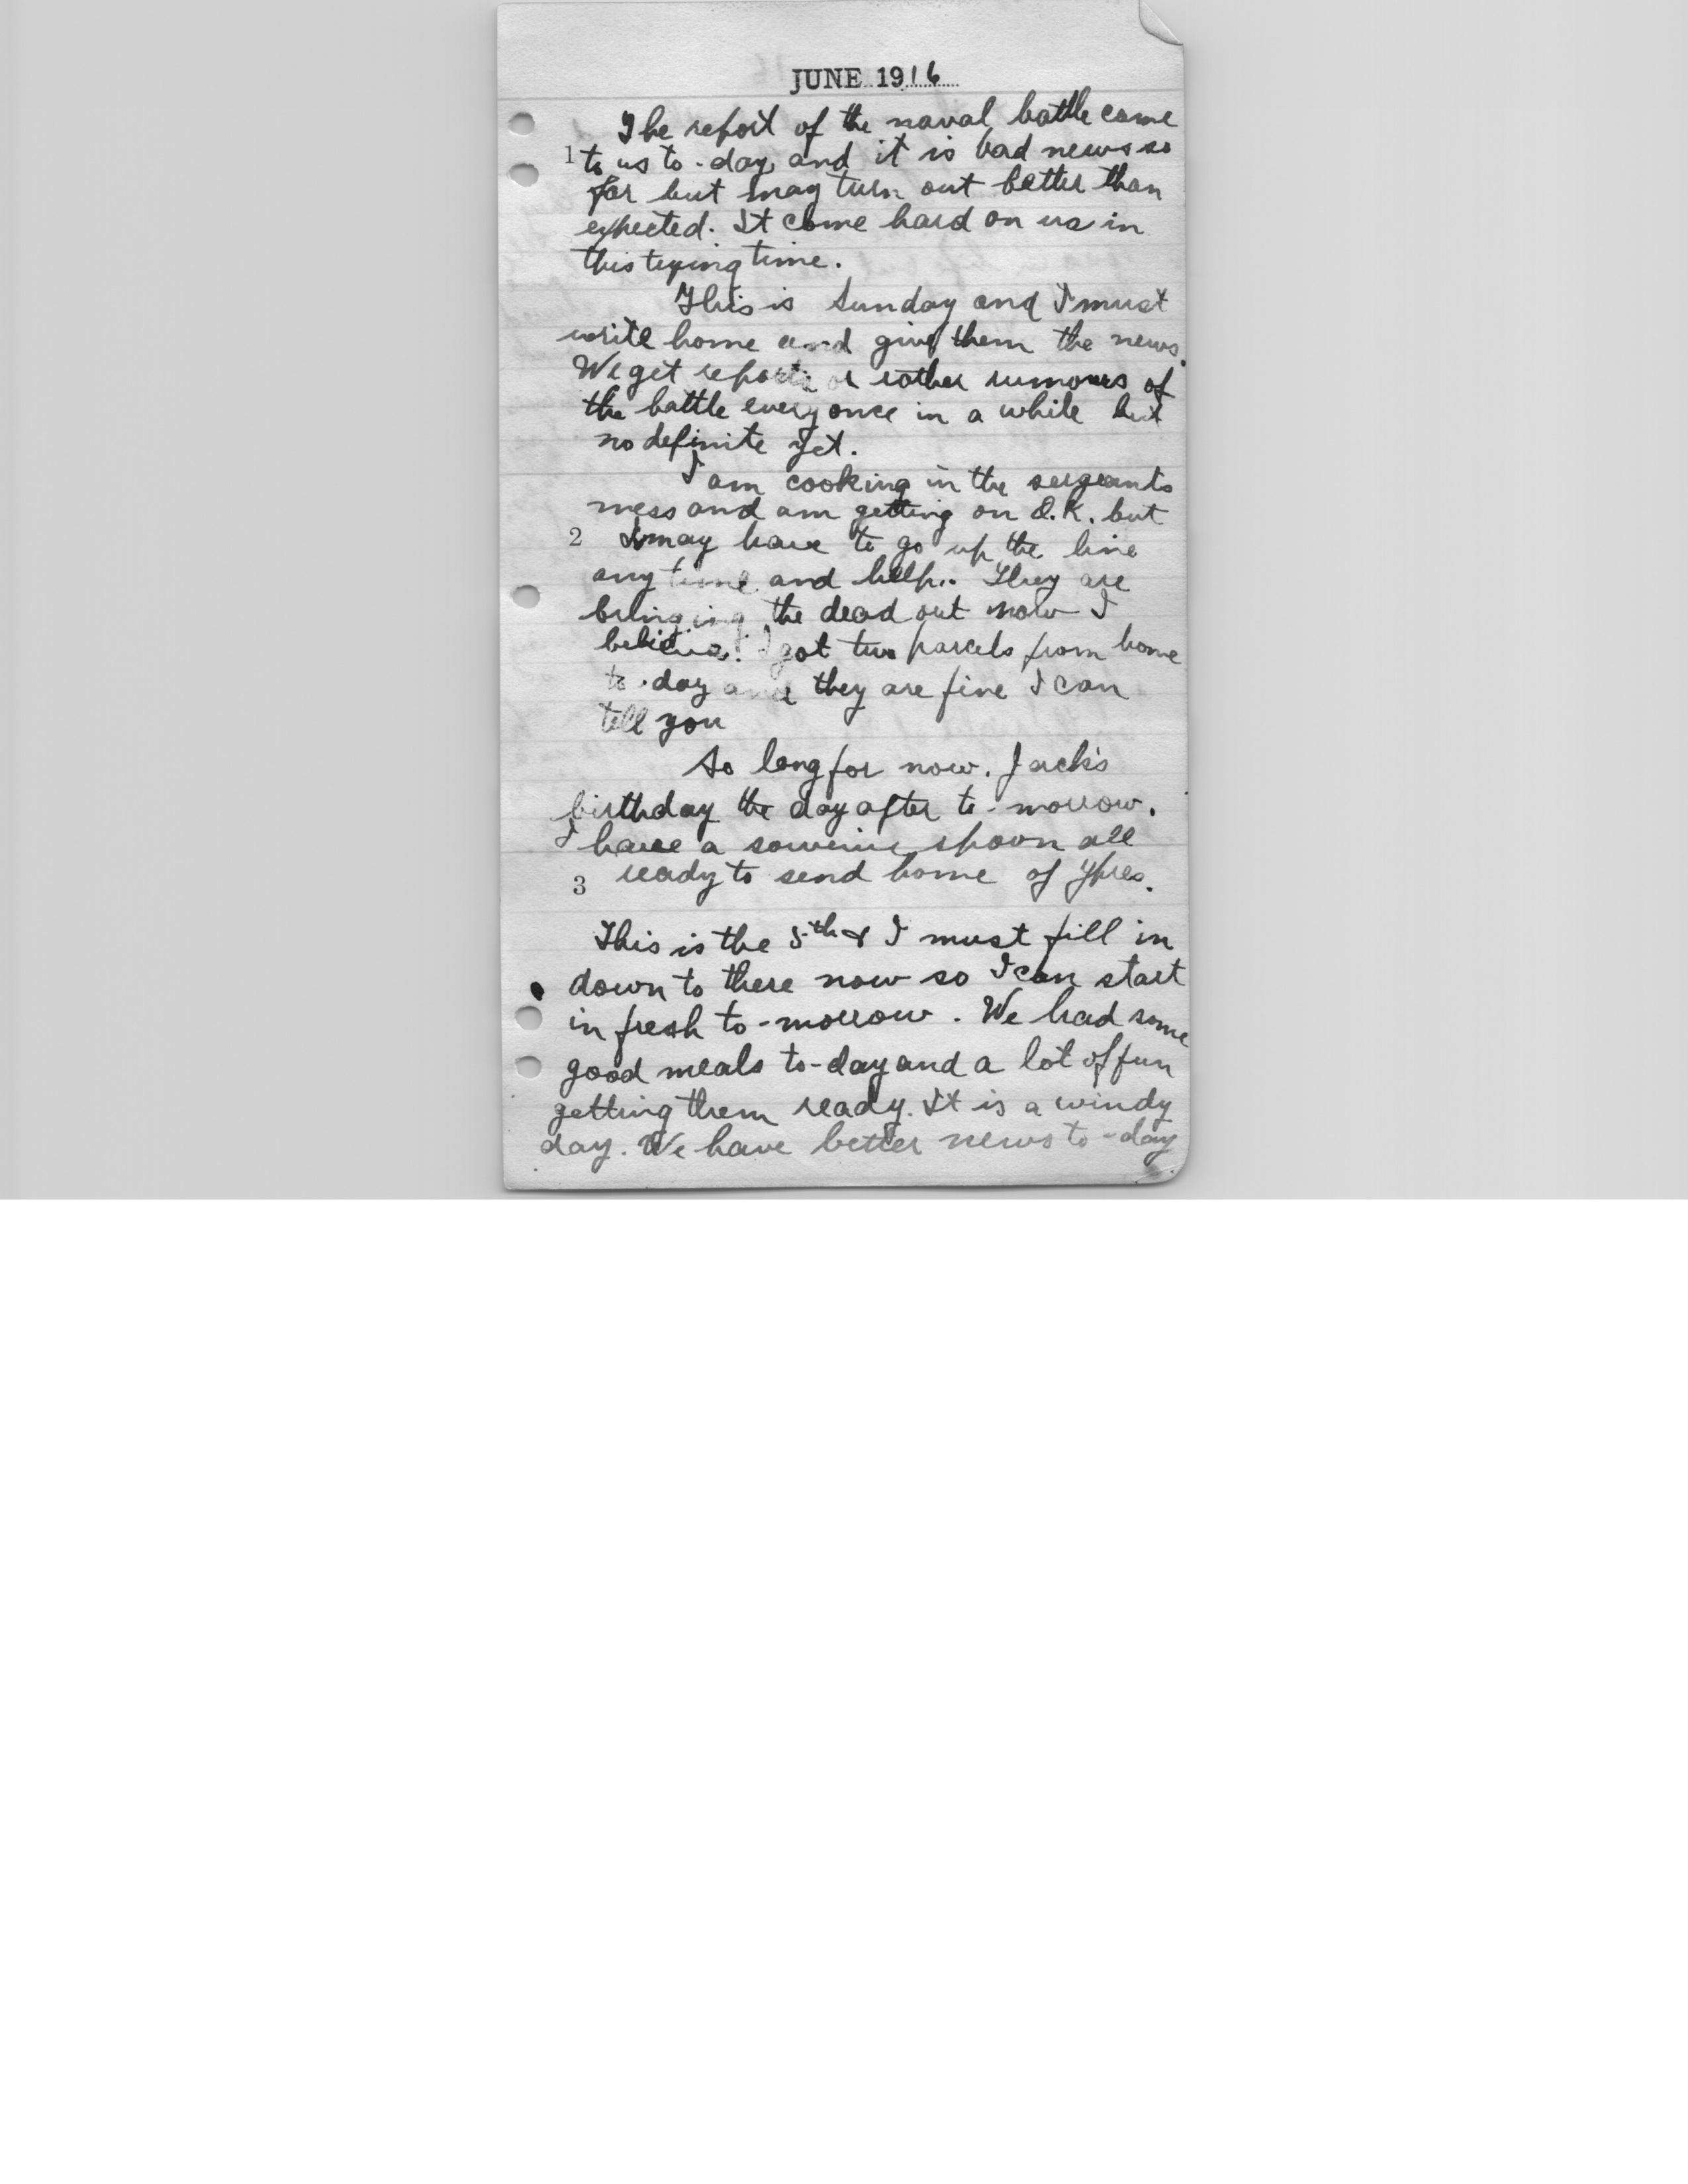 JUNE 1916
The report of the naval battle came
1 to us to-day and it is bad news so
far but may turn out better than
expected. It come hard on us in
this trying time.
This is Sunday and I must
write home and give them the news.
We get reports or rather rumours of
the battle every once in a while but
no definite yet.
I am cooking in the sergeants
mess and am getting on O.K. but
2 I may have to go up the line
any time and help. They are
bringing the dead out now I
believe. I got two parcels from home
to-day and they are fine I can
tell you
So long for now. Jack's
birthday the day after to-morrow.
I have a souvenir spoon all
3 ready to send home of Ypres.
This is the 5th & I must fill in
down to there now so I can start
in fresh to-morrow. We had some
good meals to-day and a lot of fun
getting them ready. It is a windy
day. We have better news to-day